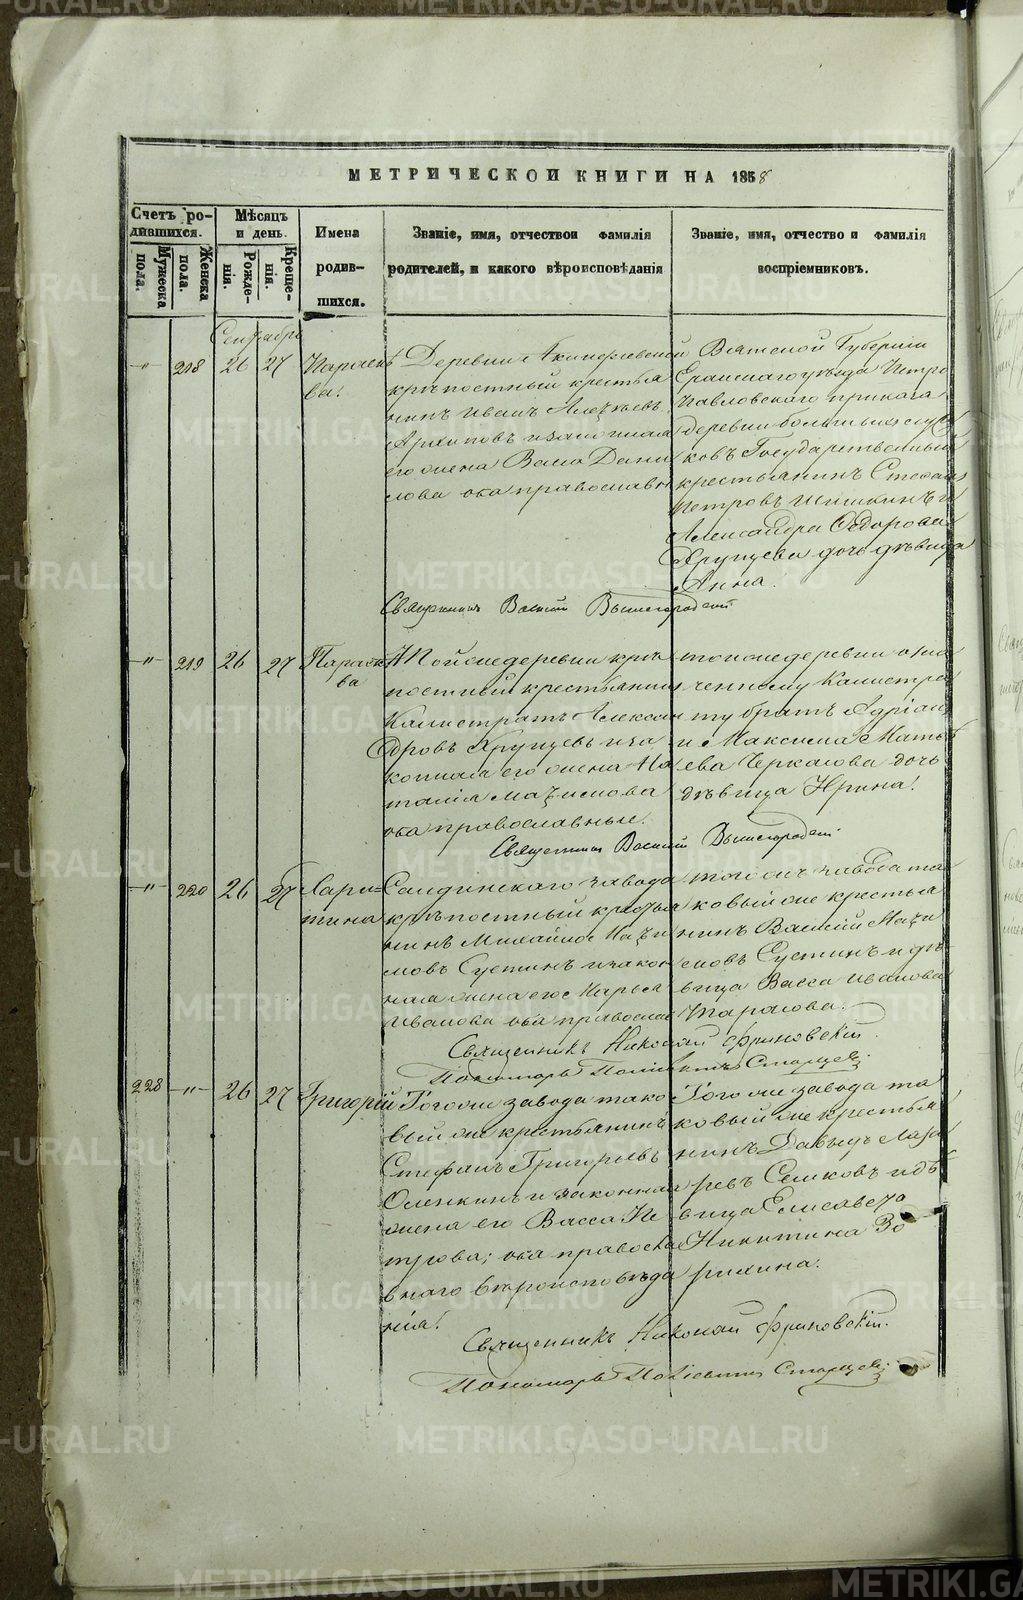 МЕТРИЧЕСКОЙ КНИГИ НА 1858
Счетъ ро-
дившихся.
Мужеска
пола.
Женска
пола.
Мѣсяцъ
и день.
Рожде-
нія.
Креще-
нія.
Имена
родив-
шихся.
Званіе, имя, отчествои фамилія
родителей, и какого вѣроисповѣданія
Званіе, имя, отчество и фамилія
воспріемниковъ.
Сентября
-"- 218 26 27 Параске
ва!
Деревни Акинфіевской
крѣпостный крестья
нинъ Иванъ Алексѣевъ
Архиповъ изаконная
его жена Васса Дани
лова оба православн
Вятской Губерніи
Еранскаго уѣзда Петро
Павловскаго приказа
деревни большихъ
ковъ Государственный
крестьянинъ Стефанъ
Петровъ Шишкинъ и
Александра Ѳедорова
Хрущева дочь дѣвица
Анна.
Священникъ Василій Вышегородскій
-"- 219 26 27 Параске
ва
Той же деревни крѣ
постный крестьянинъ
Калистратъ Алексан
дровъ Хрущевъ иза
конная его жена На
талія Максимова
оба православные.
той же деревни озна
ченному Калистра
ту братъ Адріанъ
и Максима Матвѣ
ева Черкасова дочь
дѣвица Ирина!
Священникъ Василій Вышегородскій
-"- 220 26 27 Хари-
тина
Салдинскаго завода
крѣпостный крестья
нинъ Михайло Макси
мовъ Сустинъ изакон
ная жена его Марья
Иванова оба православ
того жъ завода та
ковый же крестья
нинъ Василій Макси
мовъ Сустинъ и дѣ
вица Васса Иванова
Тарасова.
Священникъ Николай Фриновскій.
Пономарь Поліевктъ Старцевъ.
228 -"- 26 27 Григорій
Того же завода тако
вый же крестьянинъ
Стефанъ Григорьевъ
Оленкинъ и законная
жена его Васса Пе
трова; оба православ
наго вѣроисповѣда
нія!
Того же завода та
ковый же крестья
нинъ Давыдъ Лаза
ревъ Семковъ и дѣ
вица Елисавета
Никитина Зо
рихина.
Священникъ Николай Фриновскій.
Пономарь Поліевктъ Старцевъ
METRIKI.GASO-URAL.RU